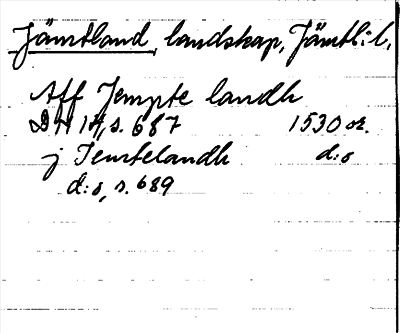 Jämtland, landskap, Jämtl:s l.
Aff Jempte landh
DN 14, s. 687 1530 ok.
j Jemtelandh d:o
d:o, s. 689